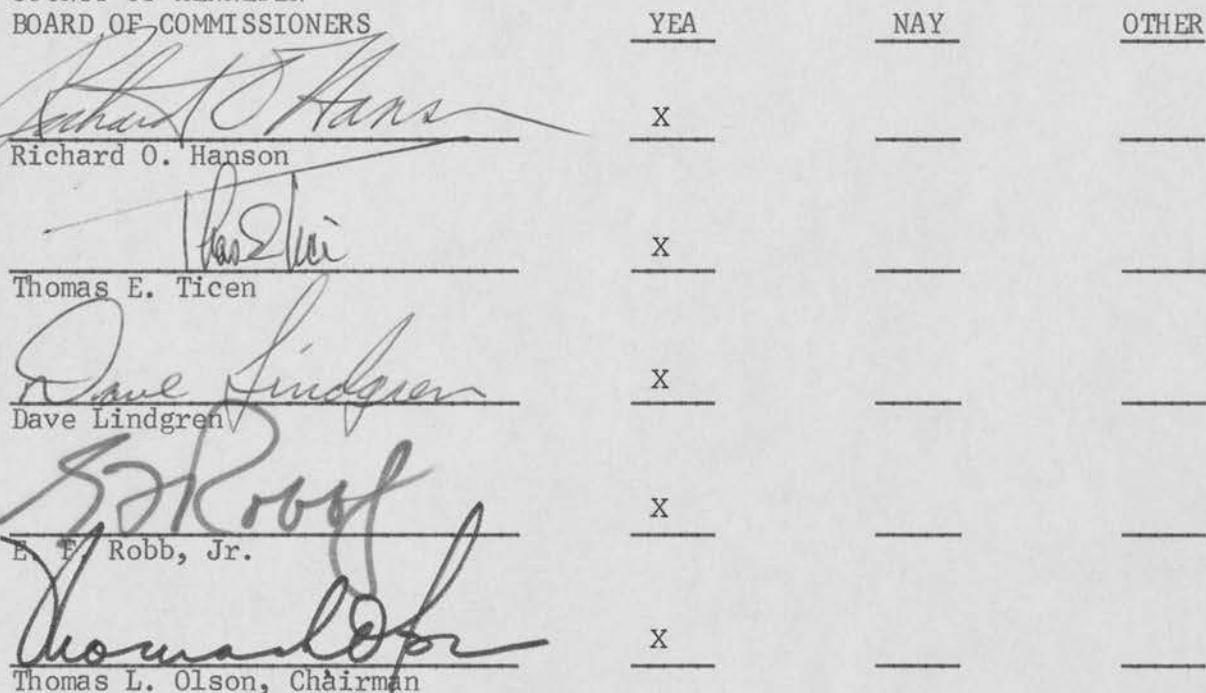 BOARD OF COMMISSIONERS YEA NAY OTHER
Richard O Hans X
Richard O. Hanson
Thos E Tici X
Thomas E. Ticen
Dave Lindgren X
Dave Lindgren
E F Robb Jr X
E. F. Robb, Jr.
Thomas L Olson X
Thomas L. Olson, Chairman